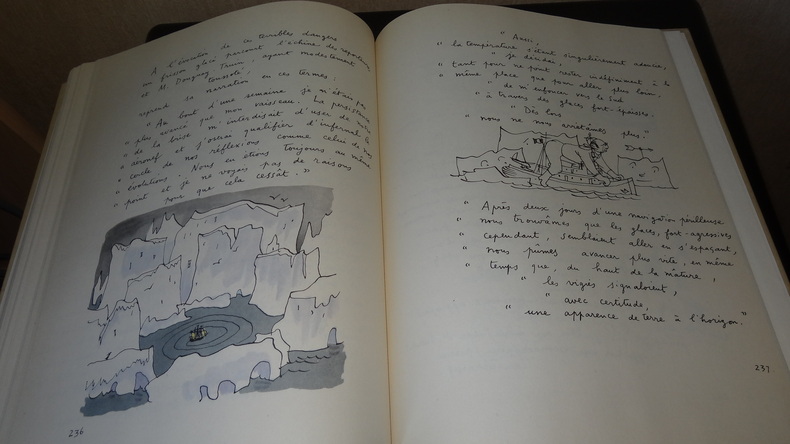 À l'évocation de ces terribles dangers
un frisson glacé parcourt l'échine des reporters
et M. Dougoay Truin, ayant modestement
toussoté,
reprend sa narration en ces termes :
" Au bout d'une semaine je n'étais pas
" plus avancé que mon vaisseau. La persistance
" de la brise m'interdisait d'user de notre
" aéronef et j'aurai qualifier d'infernal le
" cercle de nos réflexions comme celui de nos
" évolutions. Nous en étions toujours au même
" point et je ne voyais pas de raisons
" pour que cela cessât. "
236
" Aussi,
" la température s'étant singulièrement adoucie,
" je décidai,
" tant pour ne point rester indéfiniment à la
" même place que pour aller plus loin,
" de m'enfoncer vers le Sud
" à travers des glaces fort épaisses.
" Dès lors
" nous ne nous arrêtâmes plus. "
" Après deux jours d'une navigation périlleuse
" nous trouvâmes que les glaces, fort agressives
" cependant, semblaient aller en s'espaçant,
" nous pûmes avancer plus vite, en même
" temps que, du haut de la mâture,
" les vigies signalèrent,
" avec certitude,
" une apparence de terre à l'horizon. "
237